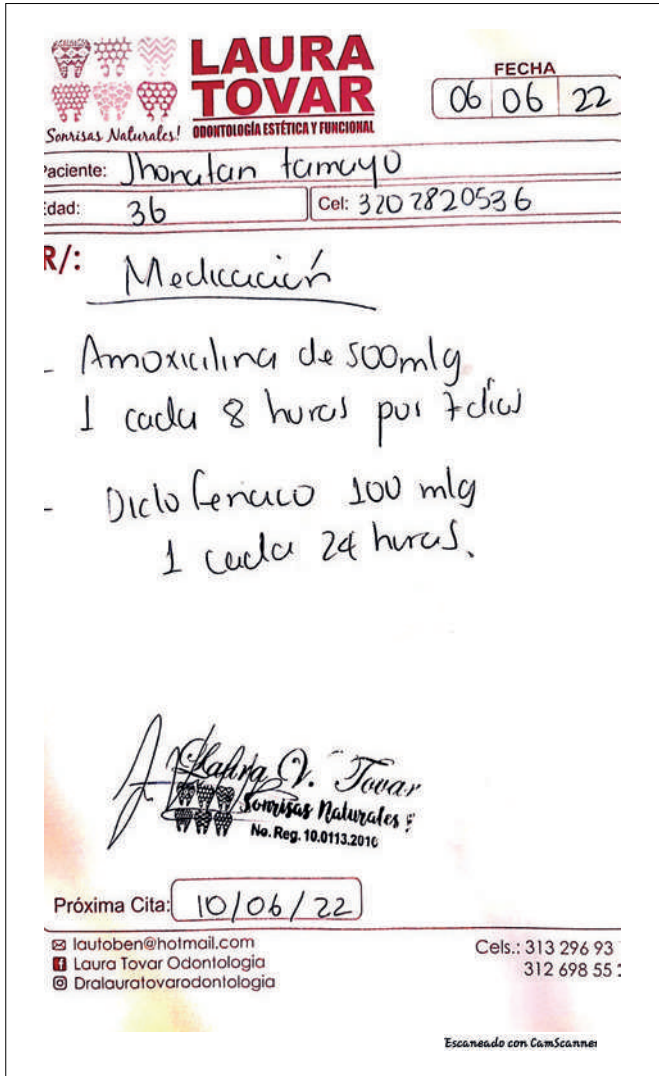 LAURA
TOVAR
Sonrisas Naturales!
ODONTOLOGÍA ESTÉTICA Y FUNCIONAL
FECHA
06 06 22
Paciente: Jhonatan tamayo
Edad: 36 Cel: 3202820536
R/:
Medicación
- Amoxicilina de 500mlg
1 cada 8 horas por 7 días
- Diclofenaco 100 mlg
1 cada 24 horas.
Laura V. Tovar
Sonrisas Naturales
No. Reg. 10.0113.2010
Próxima Cita: 10/06/22
lautoben@hotmail.com
Laura Tovar Odontologia
Dralauratovarodontologia
Cels.: 313 296 93
312 698 55
Escaneado con CamScanner